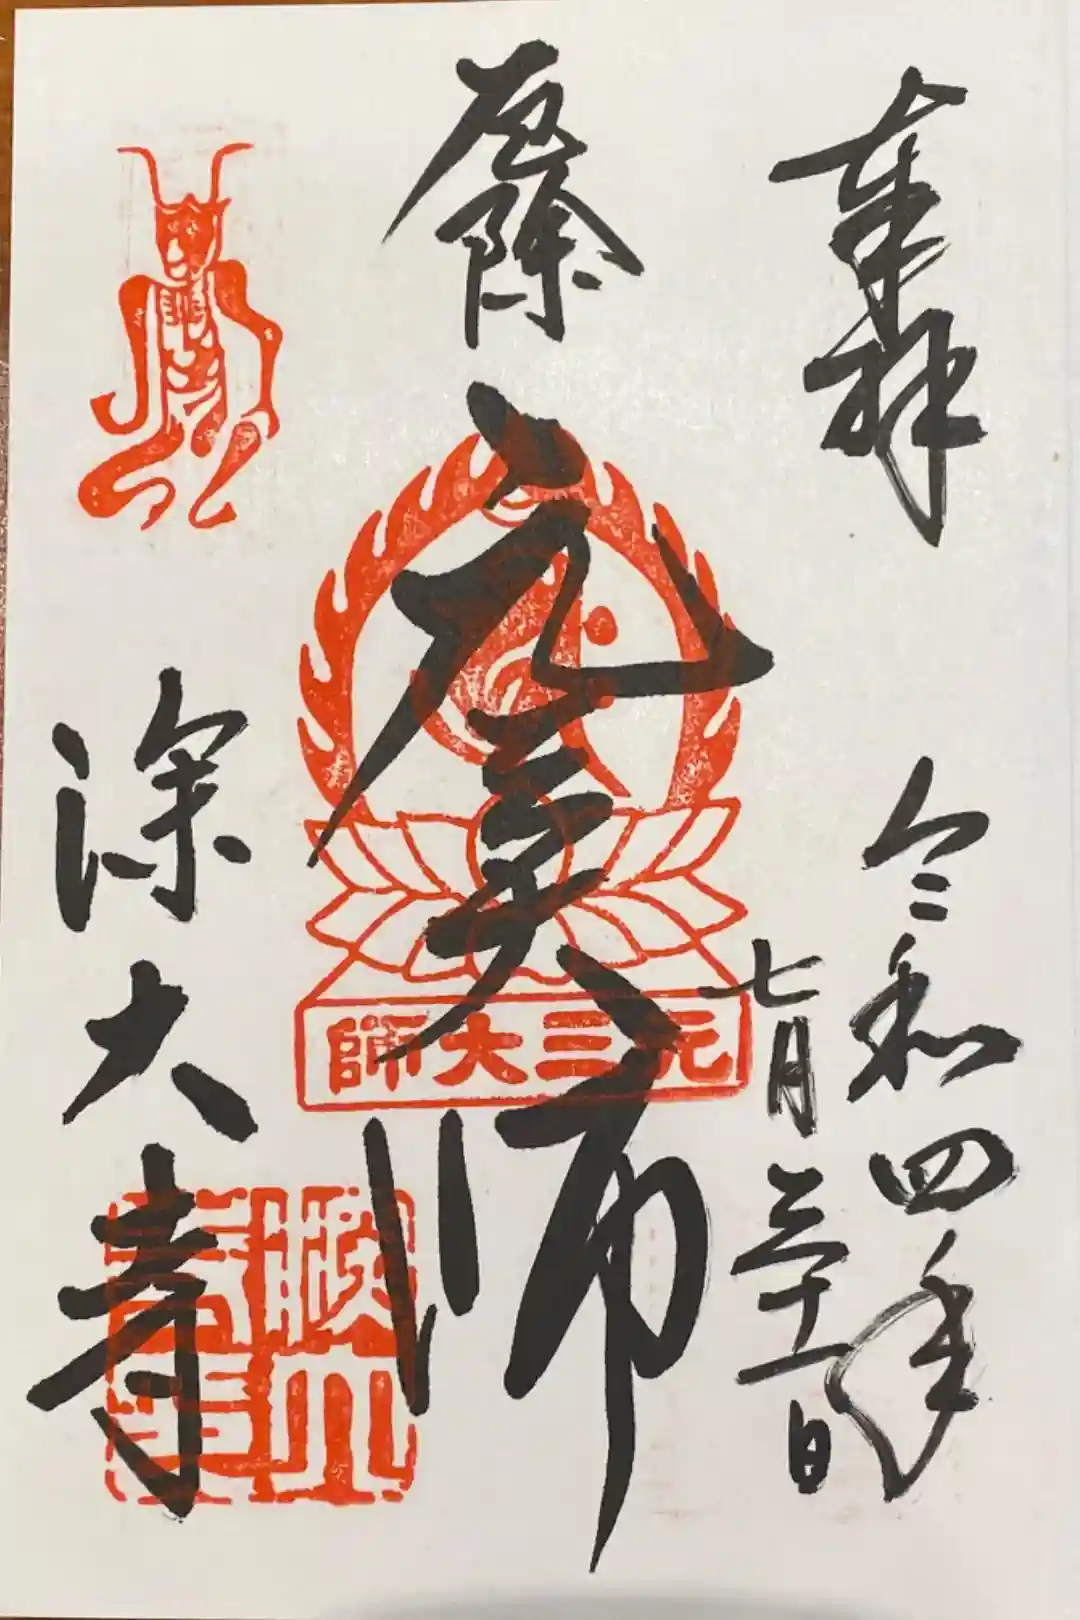 奉拝
令和四年
七月三十一日
厄除
元三大師
元三大師
深大寺